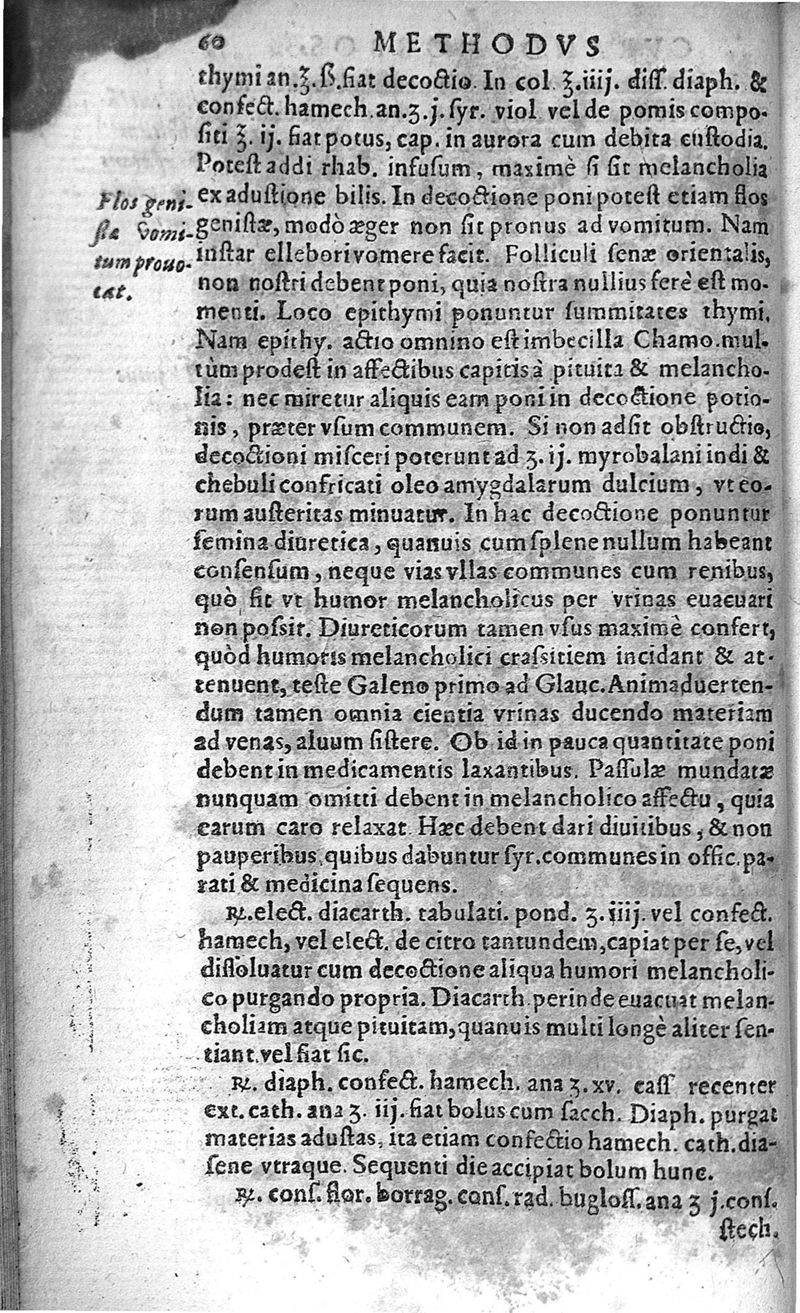 60 METHODVS
thymi an.ʒ.ß.fiat decoctio. In col. ʒ.iiij. diſſ. diaph. &
confect. hamech.an.ʒ.j.ſyr. viol vel de pomis compo-
ſiti ʒ. ij. fiat potus, cap. in aurora cum debita cuſtodia.
Poteſt addi rhab. infuſum, maximè ſi ſit melancholia
ex aduſtione bilis. In decoctione poni poteſt etiam flos
geniſtæ, modò æger non ſit pronus ad vomitum. Nam
inſtar elleborivomere facit. Folliculi ſenæ orientalis,
non noſtri debent poni, quia noſtra nullius ferè eſt mo-
menti. Loco epithymi ponuntur ſummitates thymi.
Nam epithy. actio omnino eſt imbecilla Chamo.mul-
tùm prodeſt in affectibus capitis à pituita & melancho-
lia: nec miretur aliquis eam poni in decoctione potio-
nis, præter vſum communem. Si non adſit obſtructio,
decoctioni miſceri poterunt ad ʒ. ij. myrobalani indi &
chebuli confricati oleo amygdalarum dulcium, vt eo-
rum auſteritas minuatur. In hac decoctione ponuntur
ſemina diuretica, quanuis cum ſplene nullum habeant
conſenſum, neque vias vllas communes cum renibus,
quò fit vt humor melancholicus per vrinas euacuari
non poſsit. Diureticorum tamen vſus maximè confert,
quòd humoris melancholici craſsitiem incidant & at-
tenuent, teſte Galeno primo ad Glauc. Animaduerten-
dum tamen omnia cientia vrinas ducendo materiam
ad venas, aluum ſiſtere. Ob id in pauca quantitate poni
debent in medicamentis laxantibus. Paſſulæ mundatæ
nunquam omitti debent in melancholico affectu, quia
earum caro relaxat. Hæc debent dari diuitibus, & non
pauperibus, quibus dabuntur ſyr.communes in offic.pa-
rati & medicina ſequens.
℞.elect. diacarth. tabulati. pond. ʒ.iiij. vel confect.
hamech, vel elect. de citro tantundem, capiat per ſe, vel
diſſoluatur cum decoctione aliqua humori melancholi-
co purgando propria. Diacarth. perinde euacuat melan-
choliam atque pituitam, quanuis multi longè aliter ſen-
tiant. vel fiat ſic.
℞. diaph. confect. hamech. ana ʒ.xv. caſſ recenter
ext. cath. ana ʒ. iij. fiat bolus cum ſacch. Diaph. purgat
materias aduſtas, ita etiam confectio hamech. cath. dia-
ſene vtraque. Sequenti die accipiat bolum hunc.
℞. conſ. flor. borrag. conſ. rad. bugloſſ. ana ʒ j. conſ.
ſtech.
Flos geni-
ſtæ vomi-
tum prouo-
cat.